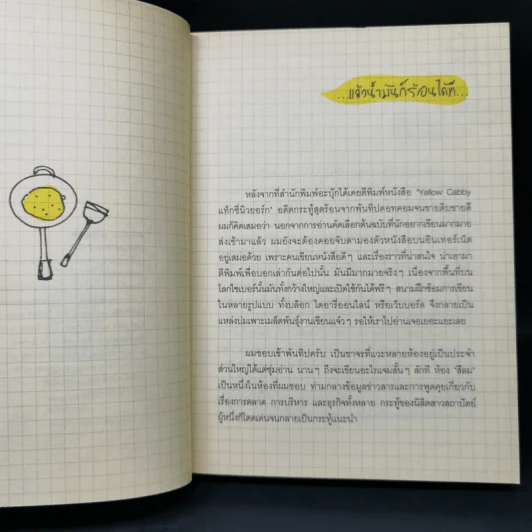 ...แล้วน้ำมันก็ร้อนได้ที่...
หลังจากที่สำนักพิมพ์อะบุ๊กได้เคยตีพิมพ์หนังสือ "Yellow Cabby
แท็กซี่นิวยอร์ก" อดีตกระทู้สุดร้อนจากพันทิปดอทคอมจนขายดิบขายดี
ผมก็คิดเสมอว่า นอกจากการอ่านคัดเลือกต้นฉบับที่นักอยากเขียนมากมาย
ส่งเข้ามาแล้ว ผมยังจะต้องคอยจับตามองตัวหนังสือบนอินเทอร์เน็ต
อยู่เสมอด้วย เพราะคนเขียนหนังสือดีๆ และเรื่องราวที่น่าสนใจ น่าเอามา
ตีพิมพ์เพื่อบอกเล่ากันต่อไปนั้น มันมีมากมายจริงๆ เนื่องจากพื้นที่บน
โลกไซเบอร์นั้นมันทั้งกว้างใหญ่และเปิดใช้กันได้ฟรีๆ สนามฝึกซ้อมการเขียน
ในหลายรูปแบบ ทั้งบล็อก ไดอารี่ออนไลน์ หรือเว็บบอร์ด จึงกลายเป็น
แหล่งบ่มเพาะเมล็ดพันธุ์งานเขียนแจ๋วๆ รอให้เราไปอ่านเจอเยอะแยะเลย
ผมชอบเข้าพันทิปครับ เป็นขาจรที่แวะหลายห้องอยู่เป็นประจำ
ส่วนใหญ่ได้แต่ซุ่มอ่าน นานๆ ถึงจะเขียนอะไรแจมสั้นๆ สักที ห้อง "สีลม"
เป็นหนึ่งในห้องที่ผมชอบ ท่ามกลางข้อมูลข่าวสารและการพูดคุยเกี่ยวกับ
เรื่องการตลาด การบริหาร และธุรกิจทั้งหลาย กระทู้ของนิสิตสาวสถาปัตย์
ผู้หนึ่งก็โดดเด่นจนกลายเป็นกระทู้แนะนำ